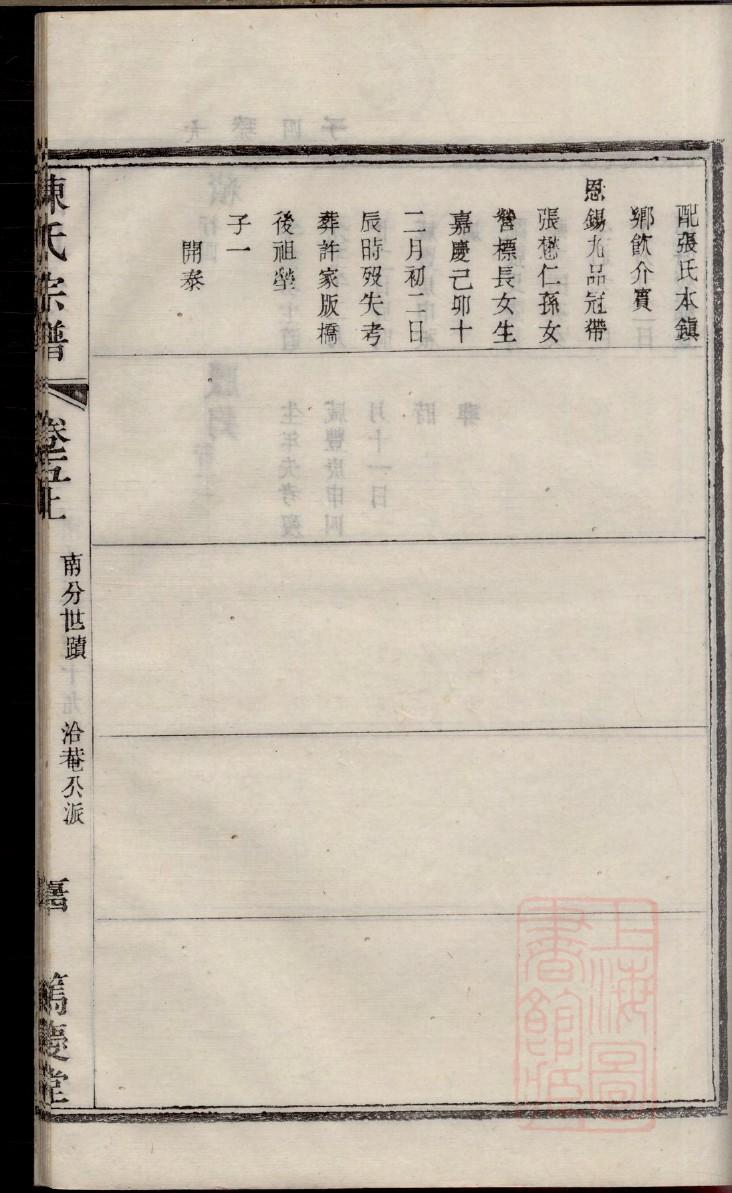 配張氏本鎮
鄉飲介賓
恩錫九品冠帶
張懋仁孫女
營標長女生
嘉慶己卯十
二月初二日
辰時歿失考
葬許家版橋
後祖塋
子一
開泰
陳氏宗譜
卷五上
南分世蹟
洽菴公派
篤慶堂
上海圖書館藏